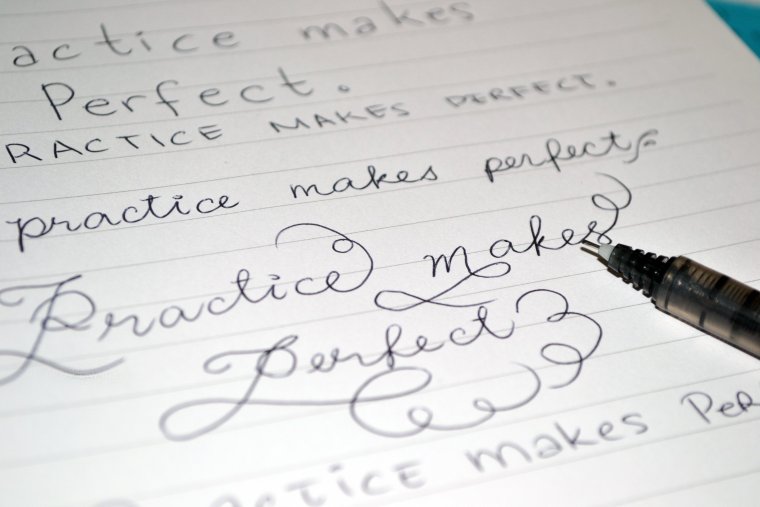 actice makes
Perfect.
RACTICE MAKES PERFECT.
practice makes perfect
Practice makes
Perfect
ACTICE MAKES PER